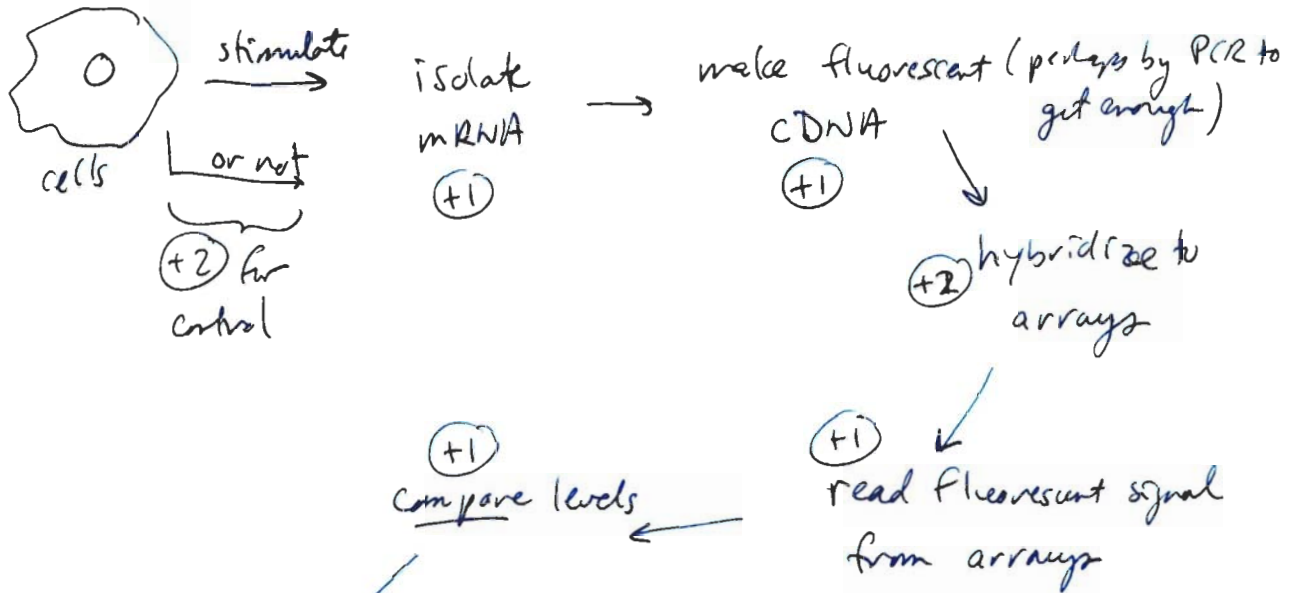 stimulate
cells
or not
+2 for
control
isolate
mRNA
+1
make fluorescent (perhaps by PCR to
get enough)
cDNA
+1
+2 hybridize to
arrays
+1
read fluorescent signal
from arrays
+1
compare levels